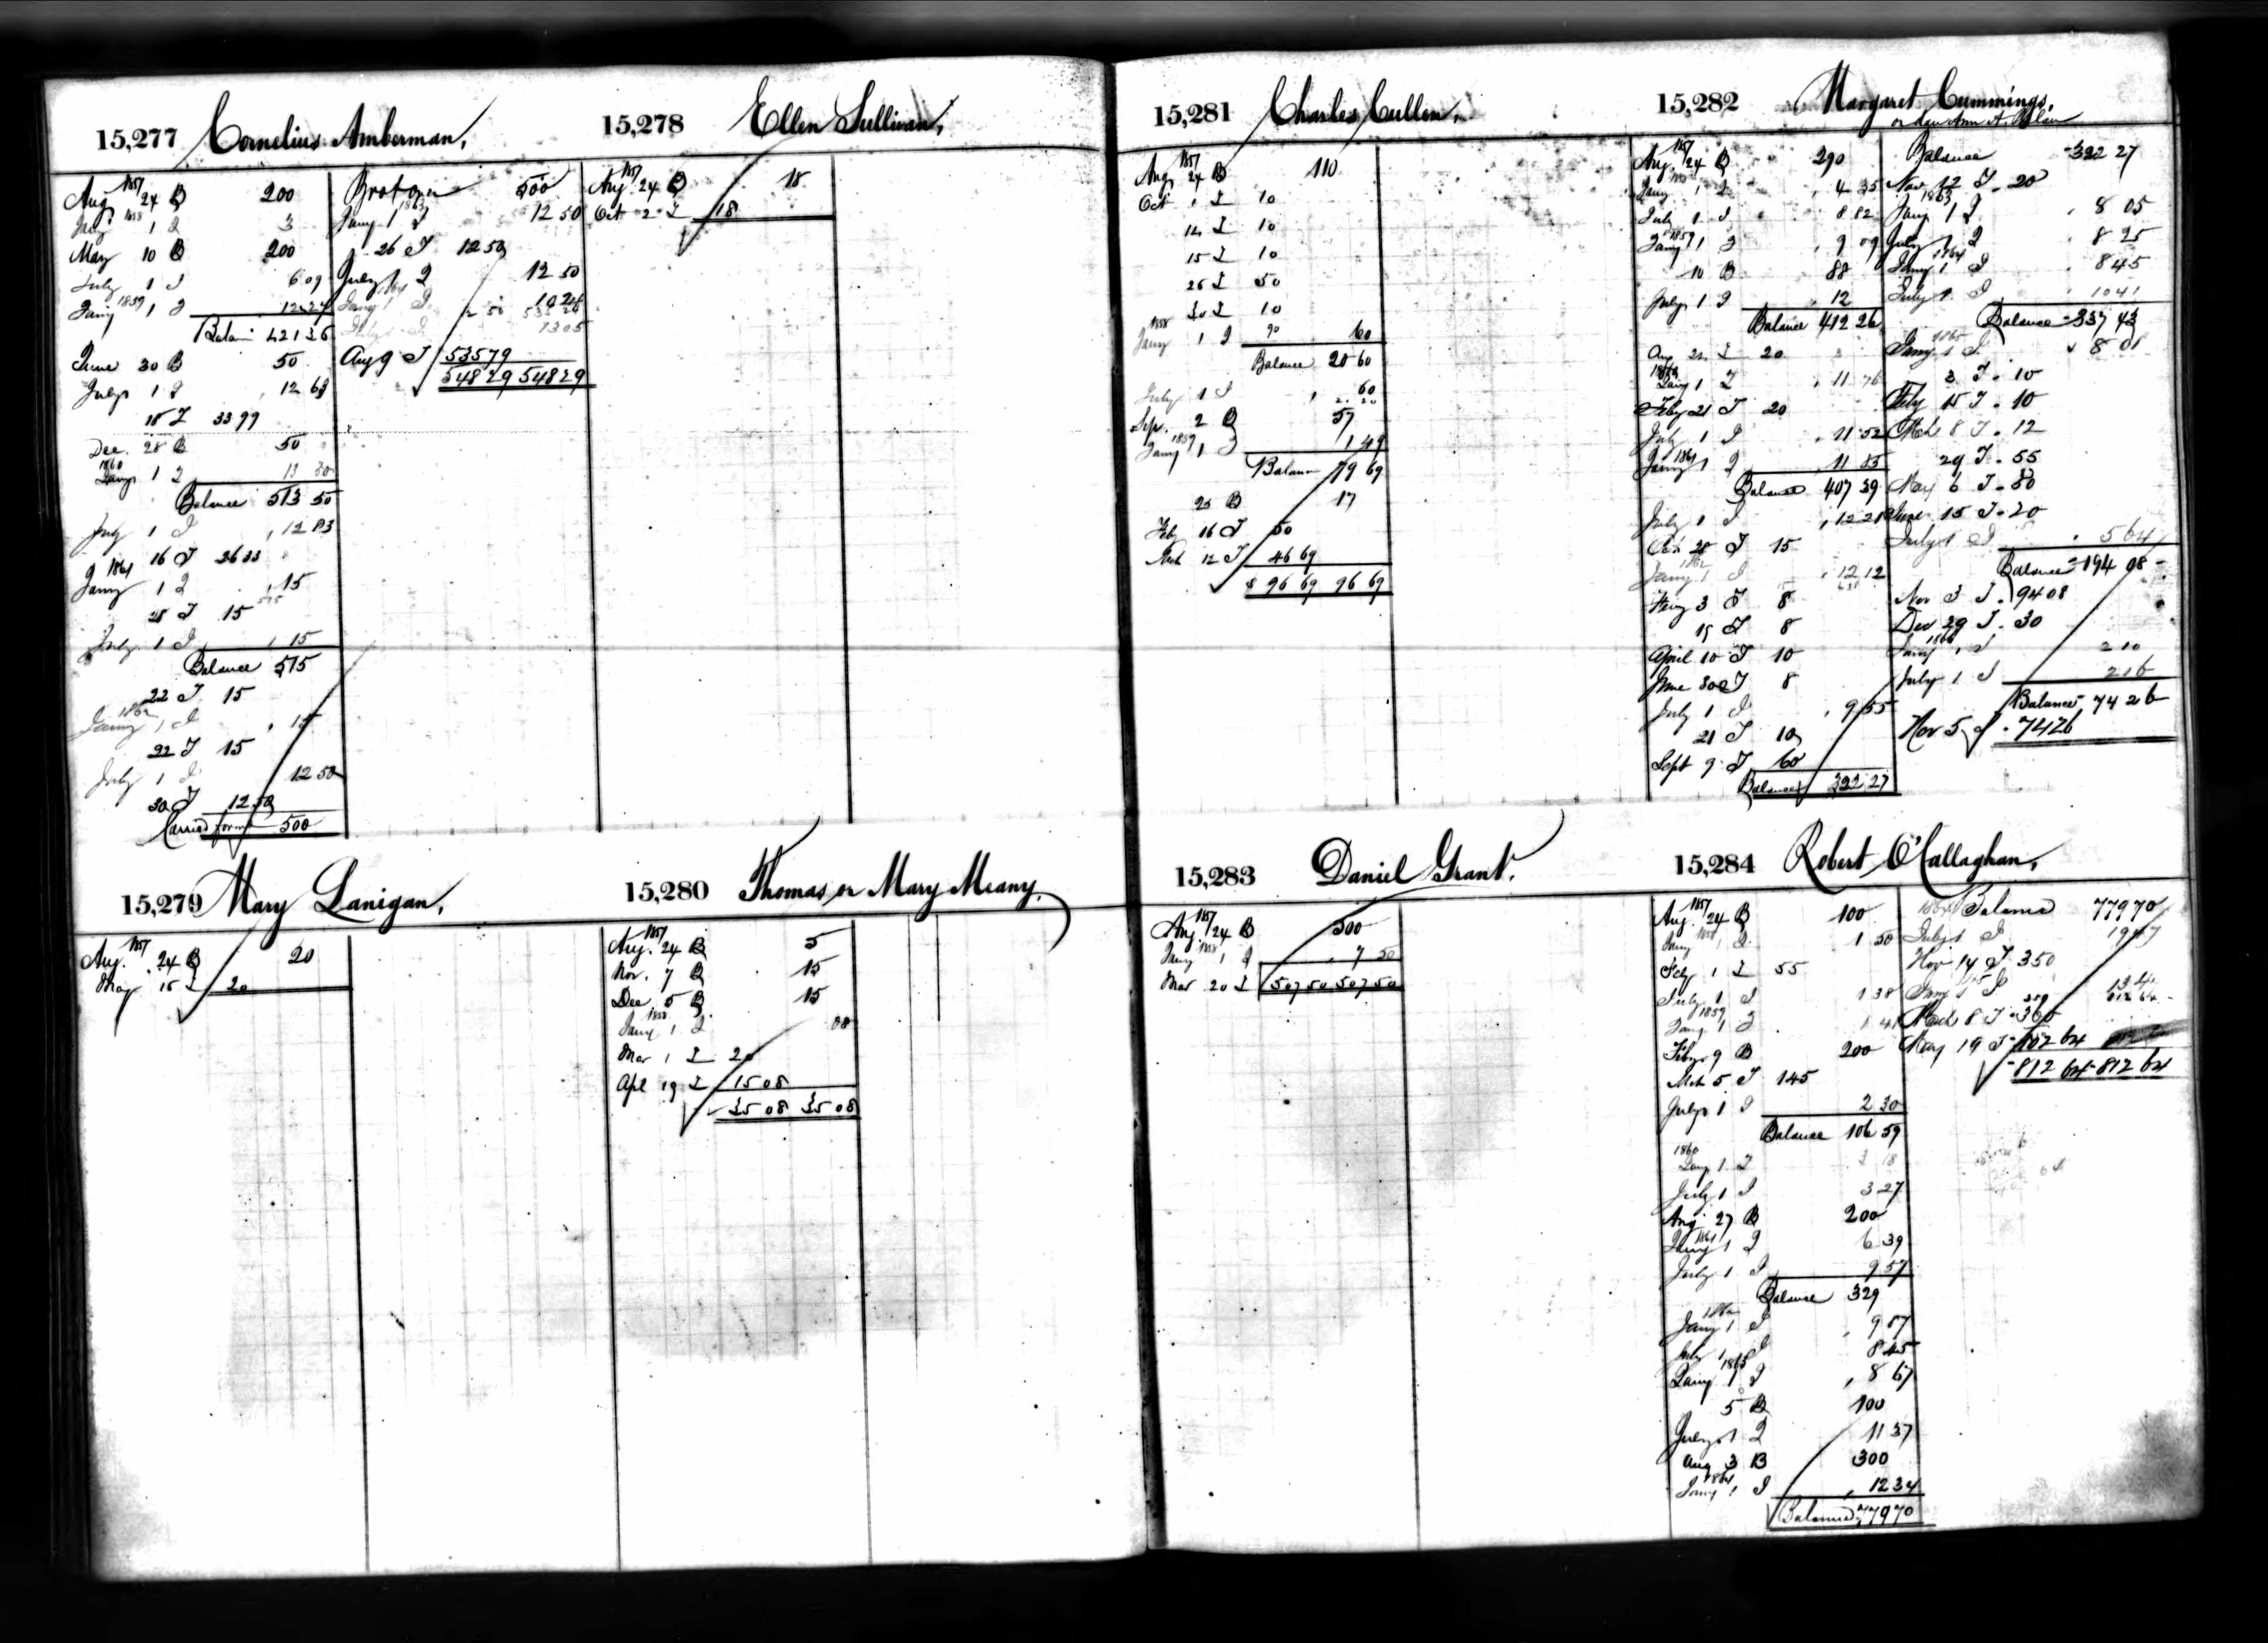 15,277 Cornelius Amberman,
1857
Aug. 24 B 200
1858
Jany 1 I 3
May 10 B 200
July 1 I 6 09
Jany 1859 1 I 12 27
Balan 421 36
June 30 B 50
July 1 I 12 63
18 I 33 99
Dec. 28 B 50
1860
Jany 1 I 13 50
Balance 513 50
July 1 I 12 83
16 I 26 33
1861
Jany 1 I 15
28 I 15
July 1 I 15
Balance 515
22 I 15
1862
Jany 1 I 15
22 I 15
July 1 I 12 50
30 I 12 50
Carried forwd 500
Brot over 500
1863
Jany 1 I 12 50
26 I 12 50
July 1 I 12 50
1864
Jany 1 I
July 1 I 13 05
Aug 9 I 535 79
548 29 548 29
15,278 Ellen Sullivan,
1857
Aug. 24 B 18
Oct 2 I 18
15,279 Mary Lanigan,
1857
Aug. 24 B 20
May 15 I 20
15,280 Thomas or Mary Meany,
1857
Aug. 24 B 5
Nov. 7 B 15
Dec 5 B 15
1858
Jany 1 I 08
Mar 1 I 20
Apl 19 I 15 08
35 08 35 08
15,281 Charles Cullen,
1857
Aug 24 B 110
Oct 1 I 10
12 I 10
15 I 10
26 I 50
30 I 10
1858
Jany 1 I 90 60
Balance 20 60
July 1 I 60
Sep. 2 B 57
1859
Jany 1 I 1 49
Balance 79 69
25 B 17
Feb 16 I 50
Mch 12 I 46 69
$ 96 69 96 69
15,282 Margaret Cummings,
1857
Aug. 24 B 290
Jany 1 I 4 35
July 1 I 8 82
1859
Jany 1 I 9 09
10 B 88
July 1 I 12
Balance 412 26
Aug 22 I 20
1860
Jany 1 I 11 76
Feby 21 I 20
July 1 I 11 52
1861
Jany 1 I 11 85
Balance 407 39
July 1 I 12 21
Oct 28 I 15
1862
Jany 1 I 12 12
Jany 3 I 8
15 I 8
April 10 I 10
June 30 I 8
July 1 I 9 55
21 I 10
Sept 9 I 60
Balance 322 27
Balance 322 27
Nov 12 I 20
1863
Jany 1 I 8 05
July 1 I 8 25
1864
Jany 1 I 8 45
July 1 I 10 41
Balance 337 43
1865
Jany 1 I 8 01
3 I 10
Feby 15 I 10
Mch 8 I 12
29 I 55
May 6 I 80
June 15 I 20
July 1 I 5 64
Balance 194 08
Nov 3 I 94 08
Dec 29 I 30
1866
Jany 1 I 2 10
July 1 I 2 16
Balance 74 26
Nov 5 I 74 26
15,283 Daniel Grant,
1857
Aug 24 B 500
1858
Jany 1 I 7 50
Mar 20 I 507 50 507 50
15,284 Robert O'Callaghan,
1857
Aug. 24 B 100
1858
Jany 1 I 1 50
Feby 1 I 55
July 1 I 1 38
1859
Jany 1 I 1 41
Feby 9 B 200
Mch 5 I 145
July 1 I 2 30
Balance 106 59
1860
Jany 1 I 3 18
July 1 I 3 27
Aug 27 B 200
1861
Jany 1 I 6 39
July 1 I 9 57
Balance 329
1862
Jany 1 I 9 87
July 1 I 8 45
1863
Jany 1 I 8 67
5 B 100
July 1 I 11 37
Aug 3 B 300
1864
Jany 1 I 12 34
Balance 779 70
1864 Balance 779 70
July 1 I 19 47
Nov 14 I 350
Jany 1 I
Mch 8 I
May 19 I
812 64 812 64